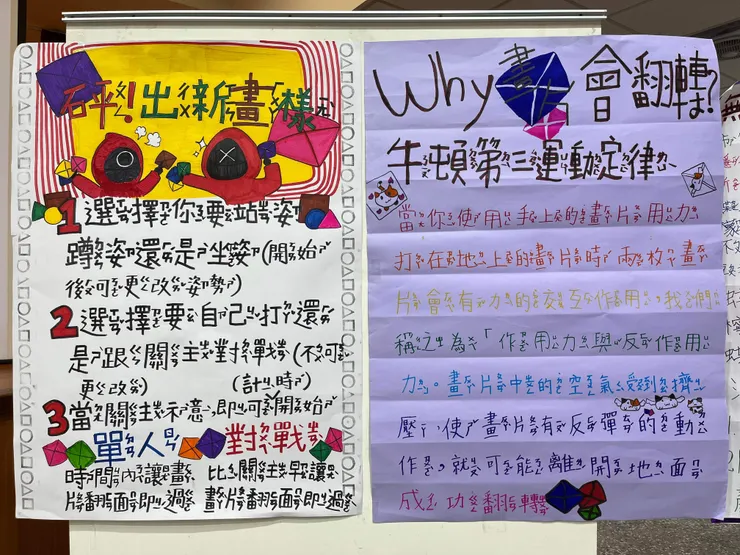 砰!出新畫樣
1選擇你要站姿
蹲姿還是坐姿(開始
後可更改姿勢)
2選擇要自己打還
是跟關主對戰(不可
更改) (計時)
3當關主示意,即可開始
單人 對戰
時間內讓畫 比關主早讓
片翻面即過 畫片翻面即過
Why畫片會翻轉?
牛頓第三運動定律
當你使用手上的畫片用力
打在地上的畫片時兩枚畫
片會有力的交互作用,我們
稱之為「作用力與反作用
力。畫片中的空氣受到擠
壓,使畫片有反彈的動
作,就可能離開地面
成功翻轉